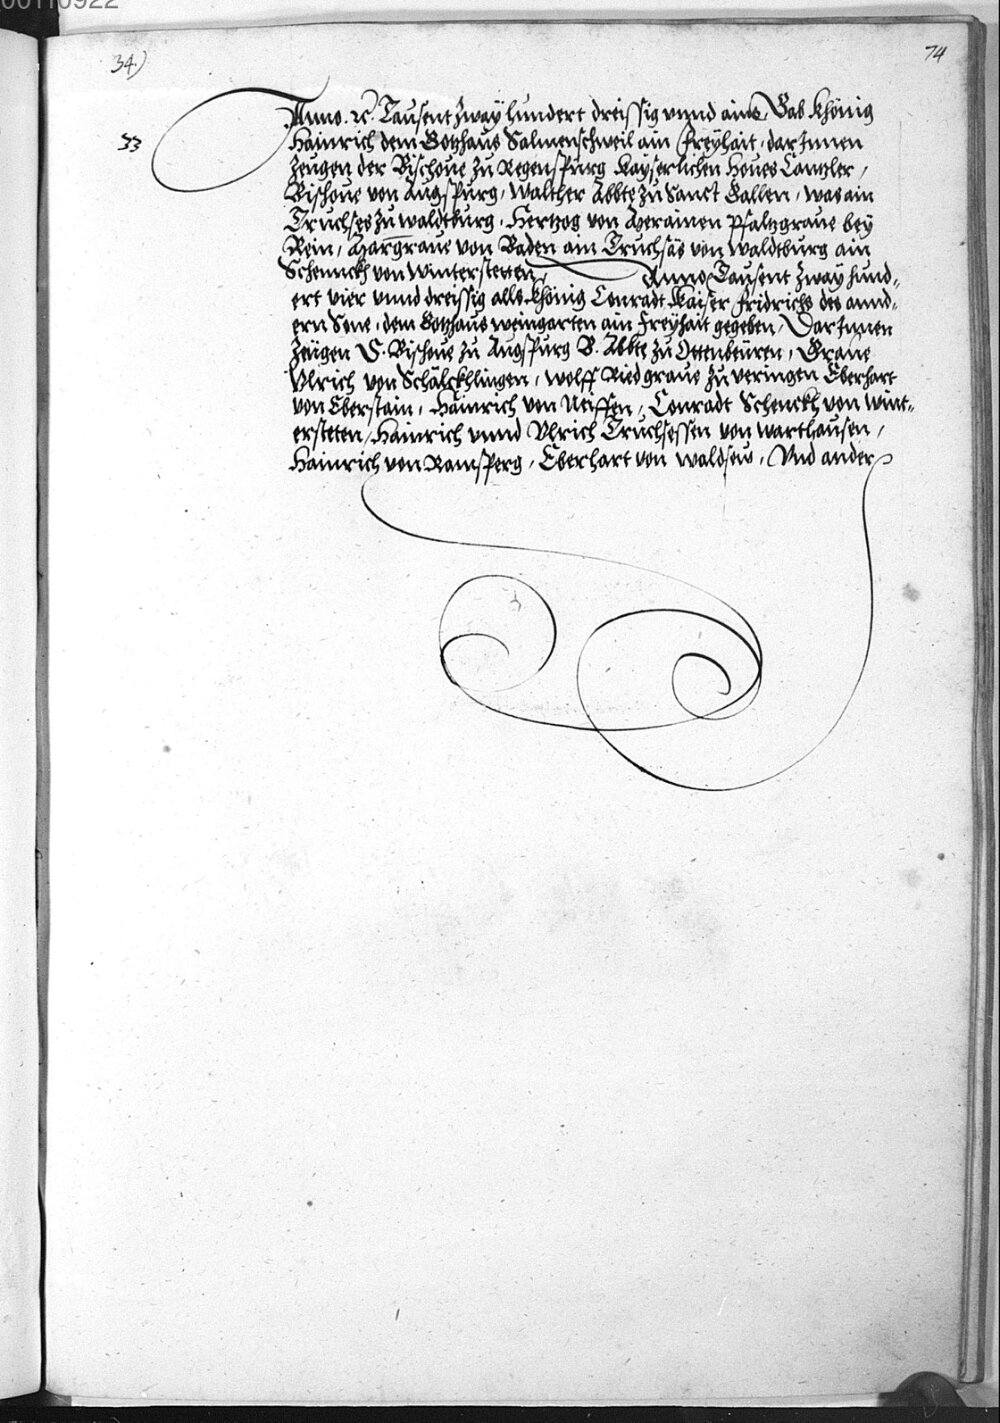 00110922
34)
74
33
Anno. ꝛc. Tausent zway hundert dreissig vnnd ains Gab khönig
Hainrich dem Gotzhaus Salmenschweil ain freyhait, dar Innen
zeugen der Bischoue zu Regenspurg Kayserlichen Houes Cantzler,
Bischoue von Augspurg, Walther Abbte zu Sanct Gallen, was ain
Truchses zu Waldtburg, Hertzog von Merainen Pfaltzgraue bey
Rein, Marggraue von Baden ain Truchsäs von Waldtburg ain
Schennckh von Winterstetten, Anno Tausent zway hund-
ert vier vnnd dreissig alls khönig Conradt Kaiser fridrichs des annd-
ern Sone, dem Gotzhaus weingarten ain freyhait gegeben, Dar Innen
zeügen S. Bischoue zu Augspurg B. Abbte zu Ottenbeüren, Graue
Vlrich von Schälckhlingen, wolff Riedgraue zu veringen Eberhart
von Eberstain, Hainrich von Neiffen, Conradt Schenckh von Wint-
ersteten, Hainrich vnnd Vlrich Truchsessen von warthausen,
Hainrich von Ramsperg, Eberhart von waldsew, Vnd ander